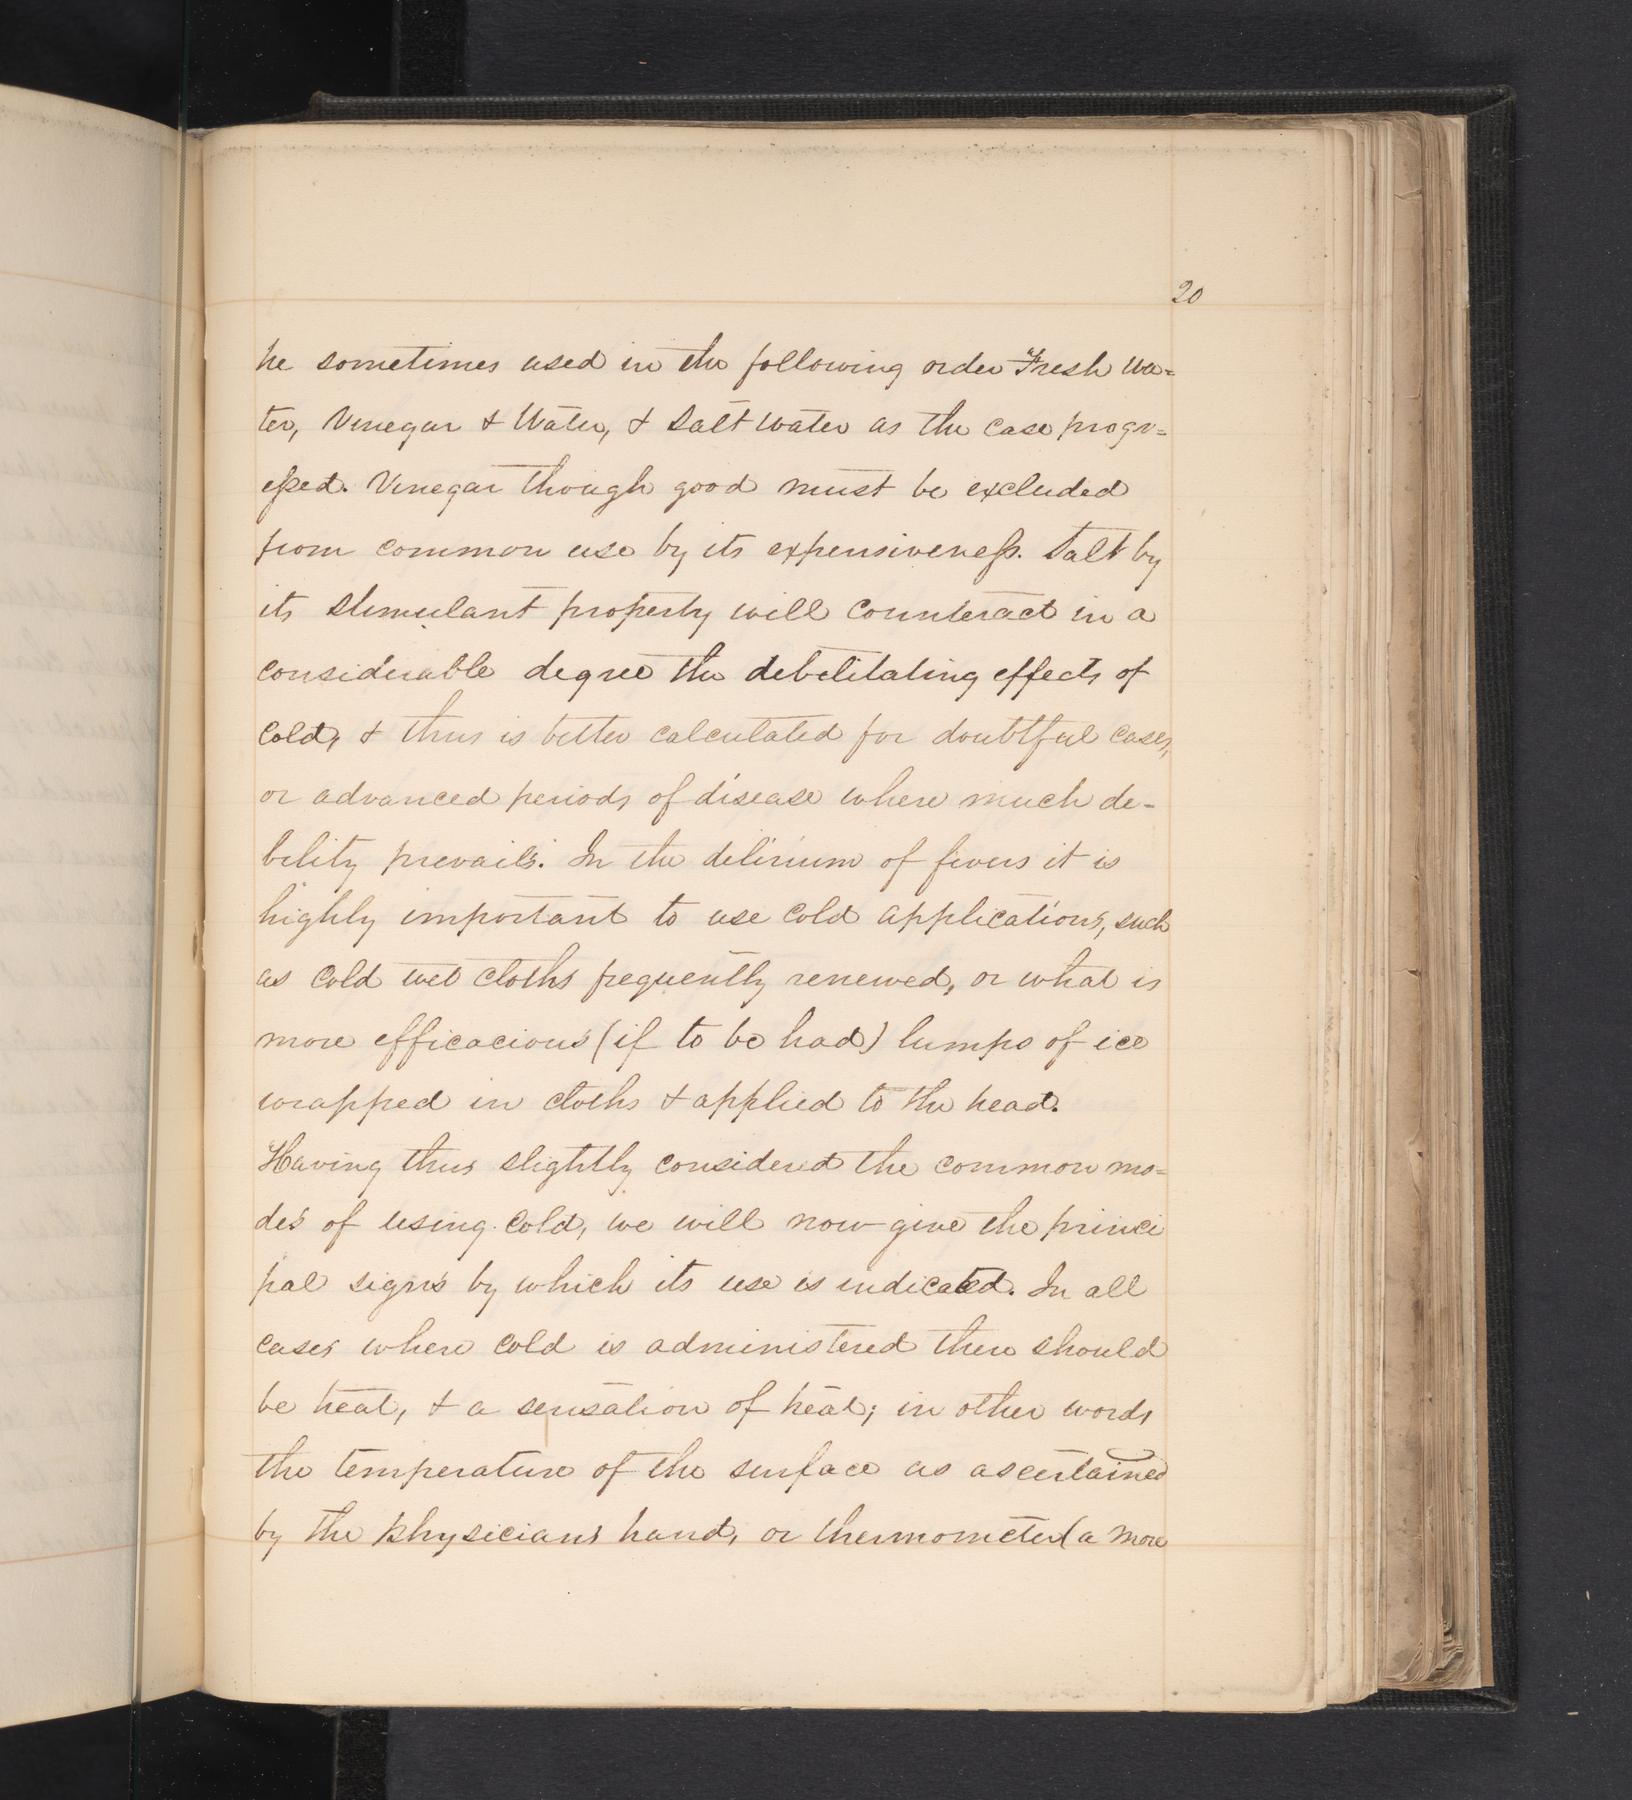 20
he sometimes used in the following order Fresh Wa=
ter, Vinegar & Water, & Salt water as the case progr=
essed. Vinegar though good must be excluded
from common use by its expensiveness. Salt by
its stimulant property will counteract in a
considerable degree the debelitating effects of
Cold, & thus is better calculated for doubtful cases,
or advanced periods of disease where much de-
bility prevails. In the delirium of fevers it is
highly important to use Cold applications, such
as Cold wet cloths frequently renewed, or what is
more efficacious (if to be had) lumps of ice
wrapped in cloths & applied to the head.
Having thus slightly considered the common mo=
des of using Cold, we will now give the princi
pal signs by which its use is indicated. In all
cases where Cold is administered there should
be heat, & a sensation of heat; in other words
the temperature of the surface as ascertained
by the physicians hand, or thermometer (a more